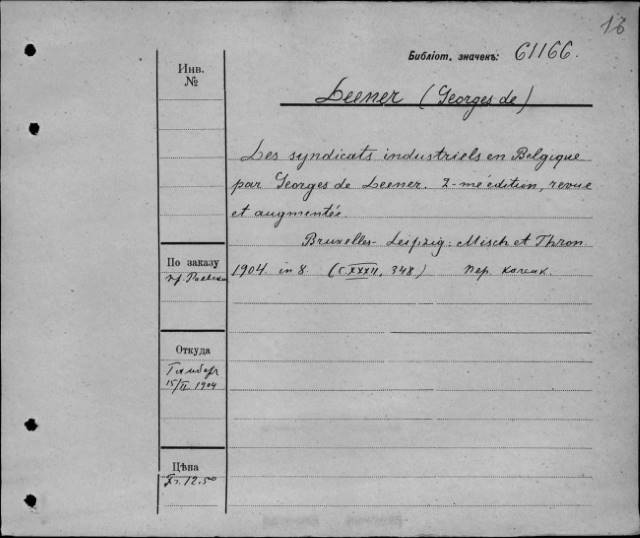 16
Библіот. значекъ: 61166.
Инв.
№
Leener (Georges de)
Les syndicats industriels en Belgique
par Georges de Leener. 2-me édition, revue
et augmentée.
Bruxelles-Leipzig: Misch et Thron
1904. in 8. (C. XXXII, 348) пер.
По заказу
пр.
Откуда
15/II 1904
Цѣна
Fr. 12.50